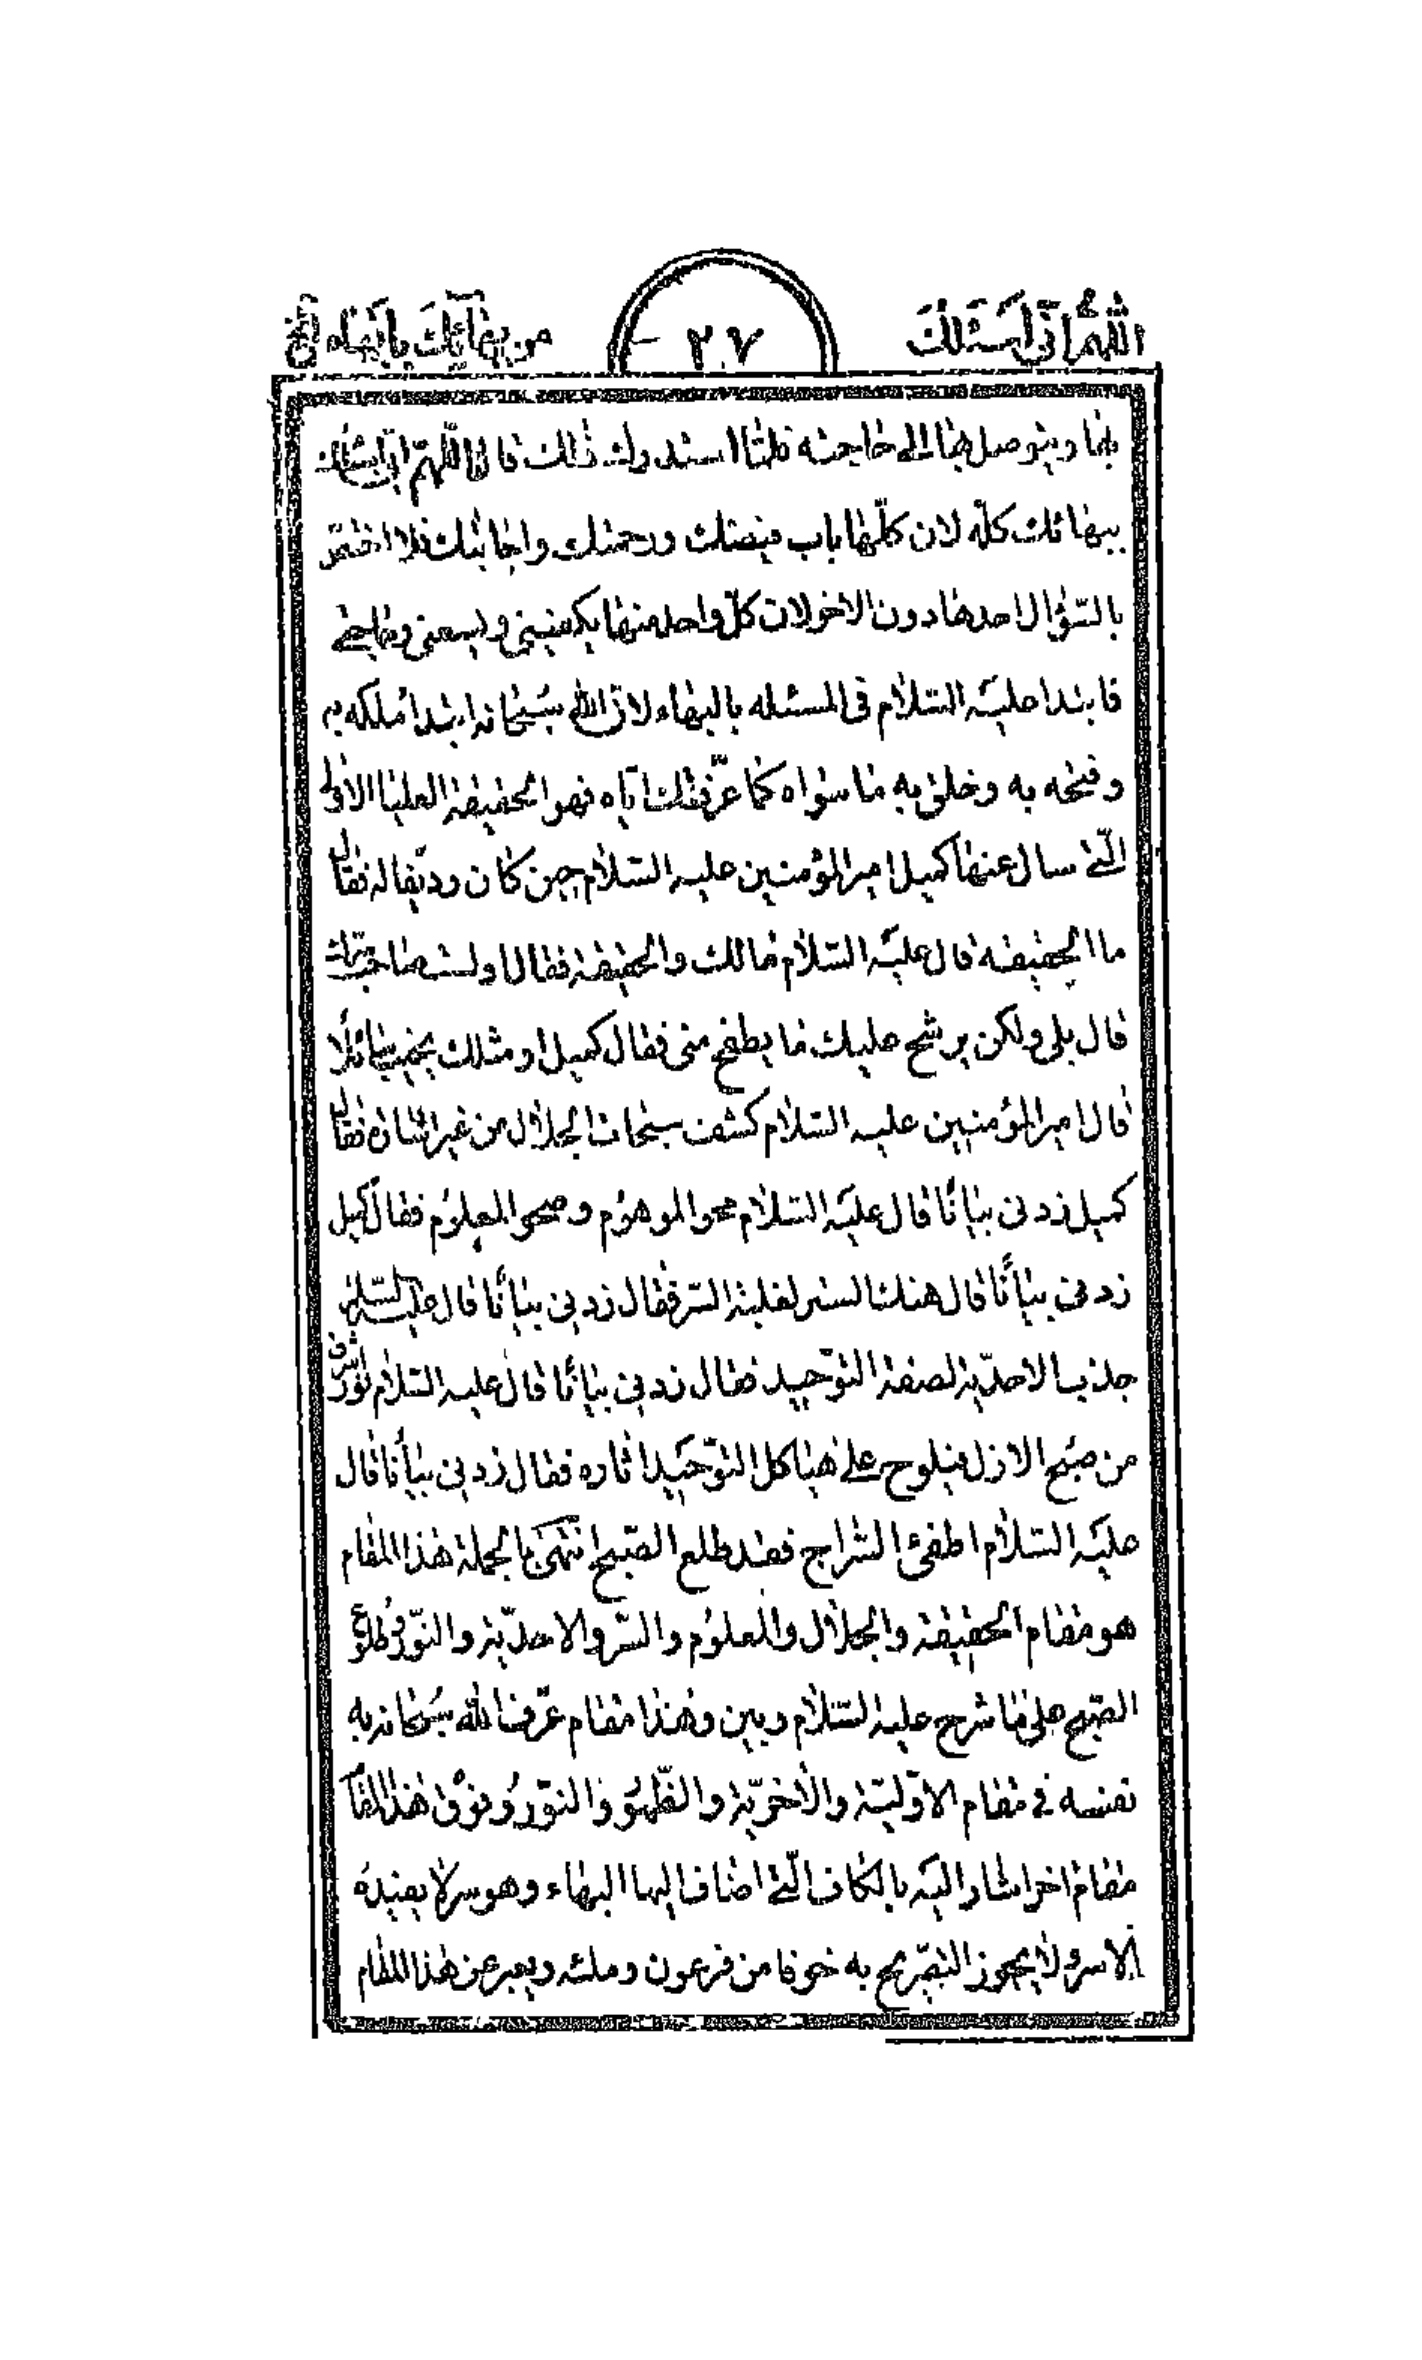 اللهم اني اسئلك ٢٧ من بهائك بابهاه الخ
بها ويتوصل بها الى حاجته فلما استدرك ذلك قال اللهم اني اسئلك
ببهائك كله لان كلها باب فيضك ورحمتك واجابتك فلا اختصر
بالسؤال احدها دون الاخر لان كل واحد منها يكفيني ويسعني وحاجتي
فابتدا عليه السلام في المسئله بالبهاء لان الله سبحانه ابتدا ملكه به
وفتحه به وخلق به ما سواه كما عرفتك اياه فهو الحقيقة العليا الاولى
التي سال عنها كميل امير المؤمنين عليه السلام حين كان رديفا له فقال
ما الحقيقه قال عليه السلام مالك والحقيقة فقال اولست صاحب سرك
قال بلى ولكن يرشح عليك ما يطفح منى فقال كميل او مثلك يخيب سائلا
قال امير المؤمنين عليه السلام كشف سبحات الجلال من غير اشارة فقال
كميل زدنى بيانًا قال عليه السلام محو الموهوم وصحو المعلوم فقال كميل
زدنى بيانًا قال هتك الستر لغلبة السر فقال زدني بيانًا قال عليه السلام
جذب الاحدية لصفة التوحيد فقال زدني بيانًا قال عليه السلام نور اشرق
من صبح الازل فيلوح على هياكل التوحيد اثاره فقال زدني بيانًا قال
عليه السلام اطفئ السراج فقد طلع الصبح انتهى بالجملة هذا المقام
هو مقام الحقيقة والجلال والمعلوم والسر والاحدية والنور وطلوع
الصبح على ما شرح عليه السلام وبين وهذا مقام عرف الله سبحانه به
نفسه في مقام الاولية والاخرية والظهور والنور وفوق هذا المقام
مقام اخر اشار اليه بالكاف التي اضاف اليها البهاء وهو سر لا يفيده
الا سر ولا يجوز التصريح به خوفا من فرعون وملئه ويعبر عن هذا المقام